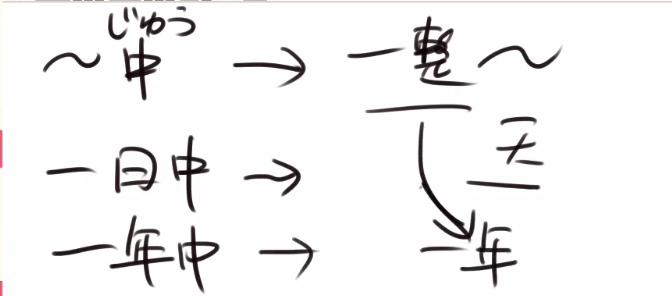 じゅう
～中 → 一整～
一日中 → 天
一年中 → 一年